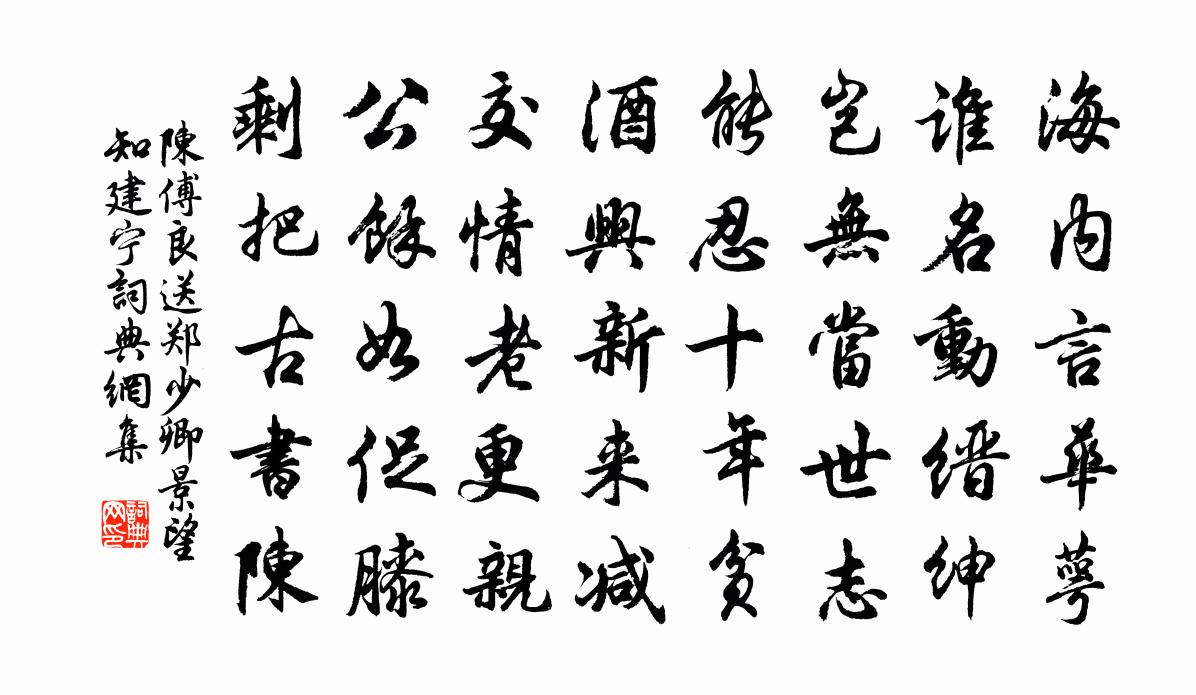 海内言華萼
誰名動縉紳
豈無當世志
能忍十年貧
酒興新来减
交情老更親
公餘如促膝
剩把古書陳
陳傅良送郑少卿景望
知建宁詞典網集
詞典网印